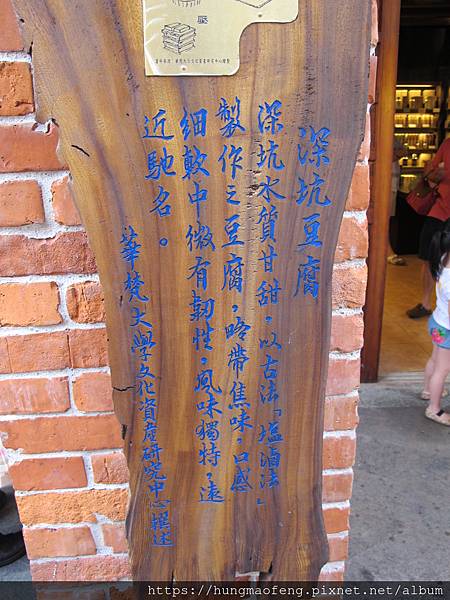 深坑豆腐
深坑水質甘甜，以古法「塩滷法」
製作之豆腐，略帶焦味，口感
細軟中微有韌性，風味獨特，遠
近馳名。
華梵大學文化資產研究中心撰述
https://hungmaofeng.pixnet.net/album